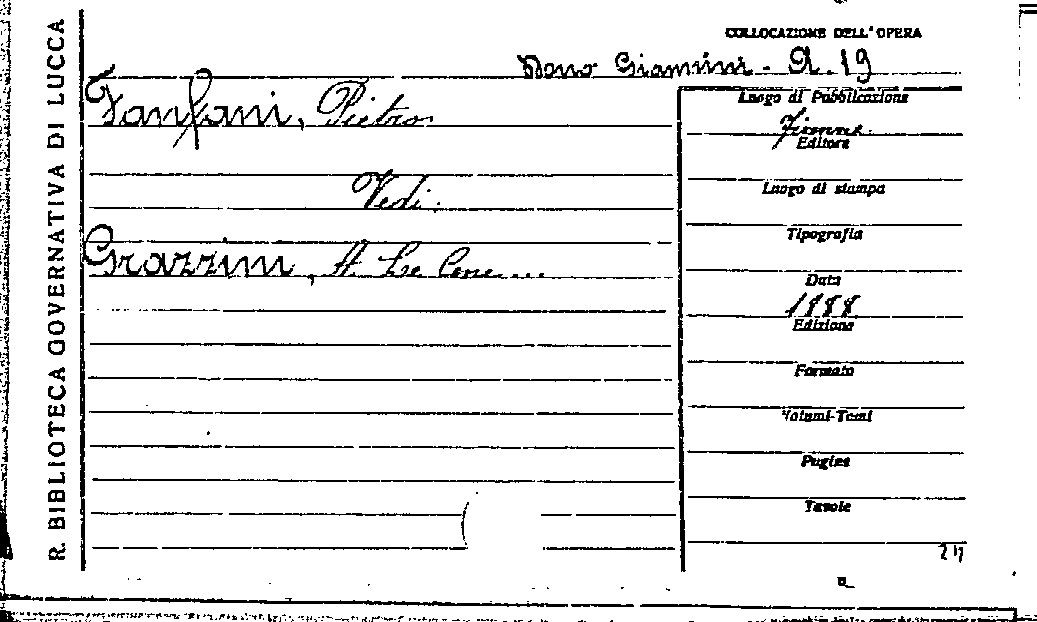 R. BIBLIOTECA GOVERNATIVA DI LUCCA
COLLOCAZIONE DELL'OPERA
Dono Giannini - A. 19
Fanfani, Pietro
Vedi:
Grazzini, A. Le Cene...
Luogo di Pubblicazione
Firenze
Editore
Luogo di stampa
Tipografia
Data
1888
Edizione
Formato
Volumi-Tomi
Pagine
Tavole